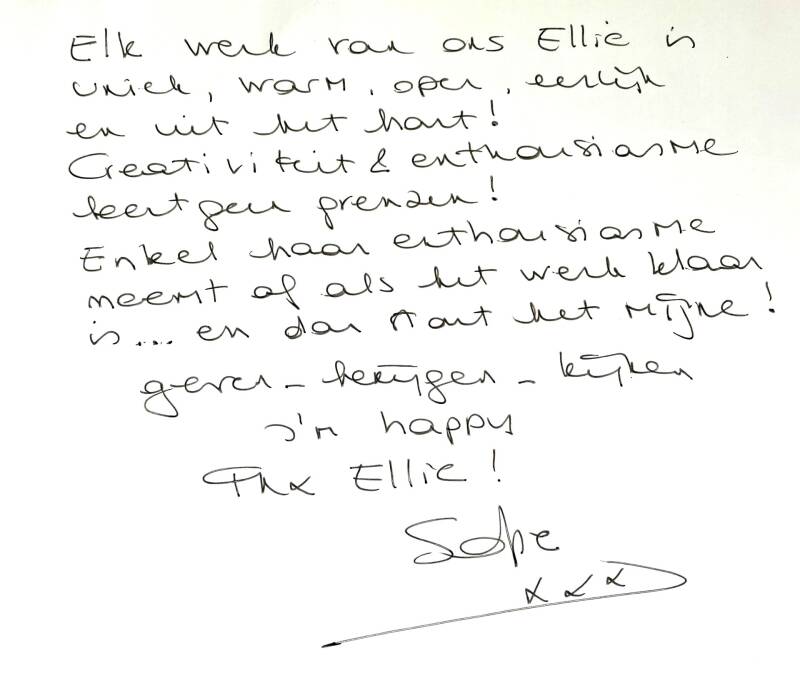 Elk werk van ons Ellie is
uniek, warm, open, eerlijk
en uit het hart!
Creativiteit & enthousiasme
kent geen grenzen!
Enkel haar enthousiasme
neemt af als het werk klaar
is.... en dan start het mijne!
geven - krijgen - kijken
I'm happy
Thx Ellie!
xxx